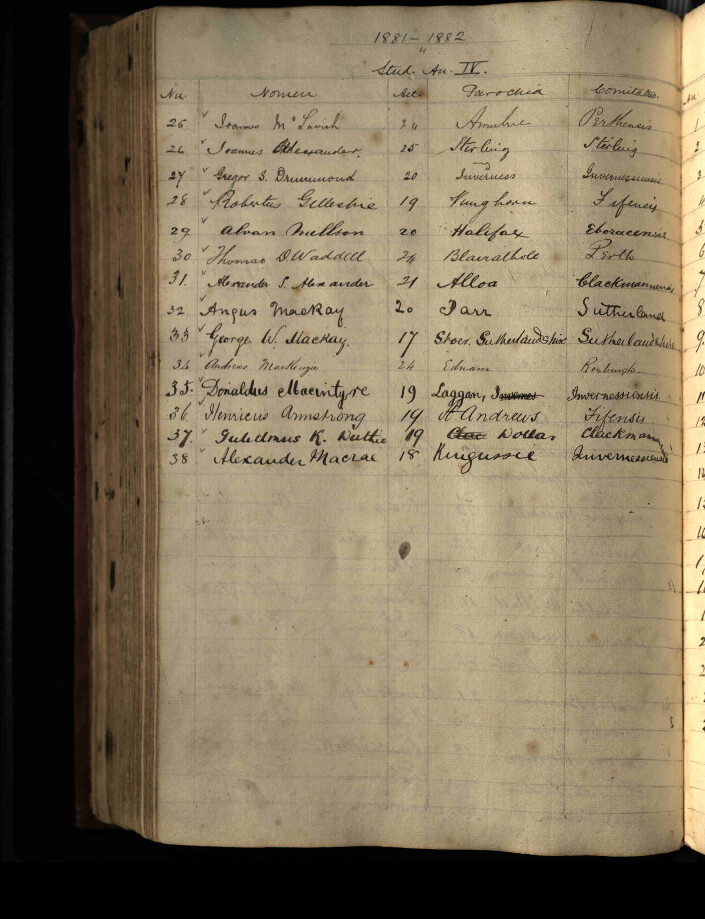 1881–1882
Stud. An. IV.
Nu. Nomen Aet. Parochia Comitatus.
25 Ioannes McTavish 24 Perthensis
26 Ioannes Alexander. 25 Sterling Sterling
27 Gregor S. Drummond 20 Inverness Invernessensis
28 Robertus Gillespie 19 Kinghorn Fifensis
29 Alvan Millson 20 Halifax Eboracensis
30 Thomas D. Waddell 24 Blairathole Perth
31. Alexander S. Alexander 21 Alloa Clackmannensis
32 Angus MacKay 20 Farr Sutherland
33 George W. Mackay. 17 Stoer. Sutherlandshire Sutherlandshire
34 Andreas MacKenzie 24 Ednam Roxburgh
35. Donaldus Macintyre 19 Laggan, Invernessiensis
36 Henricus Armstrong 19 St Andrews Fifensis
37. Gulielmus K. Duthie 19 Dollar Clackmannan
38 Alexander Macrae 18 Kingussie Invernessiensis